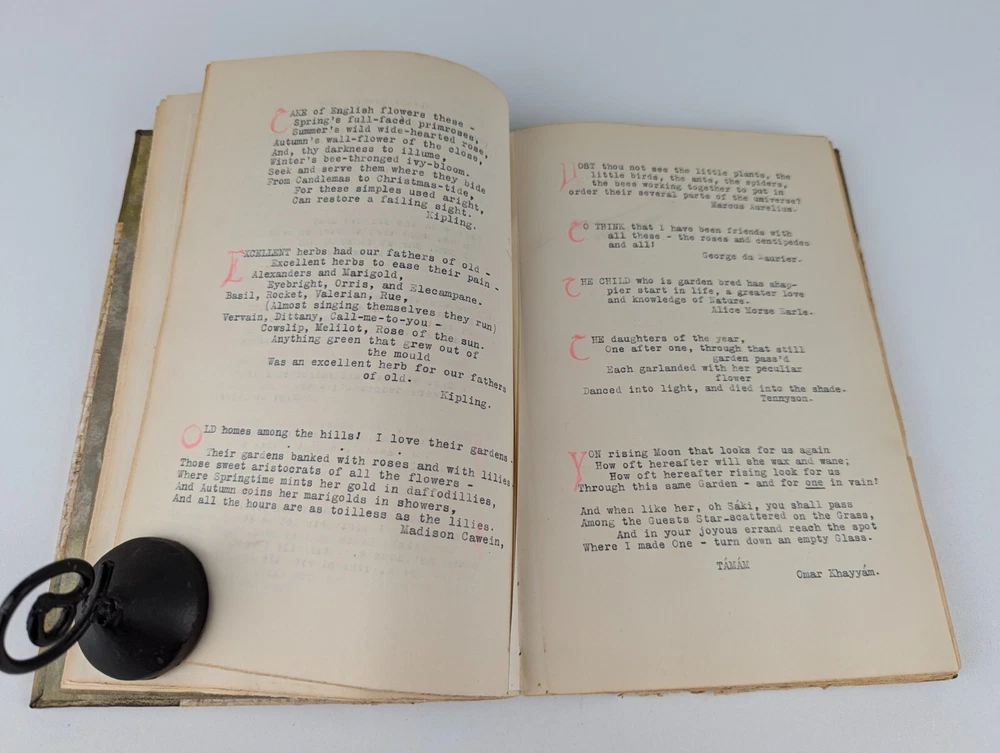 TAKE of English flowers these -
Spring's full-faced primroses,
Summer's wild wide-hearted rose,
Autumn's wall-flower of the close,
And, thy darkness to illume,
Winter's bee-thronged ivy-bloom.
Seek and serve them where they bide
From Candlemas to Christmas-tide,
For these simples used aright,
Can restore a failing sight.
Kipling.
EXCELLENT herbs had our fathers of old -
Excellent herbs to ease their pain -
Alexanders and Marigold,
Eyebright, Orris, and Elecampane.
Basil, Rocket, Valerian, Rue,
(Almost singing themselves they run)
Vervain, Dittany, Call-me-to-you -
Cowslip, Melilot, Rose of the sun.
Anything green that grew out of
the mould
Was an excellent herb for our fathers
of old.
Kipling.
OLD homes among the hills! I love their gardens.
. . . .
Their gardens banked with roses and with lilies
Those sweet aristocrats of all the flowers -
Where Springtime mints her gold in daffodillies,
And Autumn coins her marigolds in showers,
And all the hours are as toilless as the lilies.
Madison Cawein,
DOST thou not see the little plants, the
little birds, the ants, the spiders,
the bees working together to put in
order their several parts of the universe?
Marcus Aurelius.
TO THINK that I have been friends with
all these - the roses and centipedes
and all!
George du Maurier.
THE CHILD who is garden bred has a hap-
pier start in life, a greater love
and knowledge of Nature.
Alice Morse Earle.
THE daughters of the year,
One after one, through that still
garden pass'd
Each garlanded with her peculiar
flower
Danced into light, and died into the shade.
Tennyson.
YON rising Moon that looks for us again
How oft hereafter will she wax and wane;
How oft hereafter rising look for us
Through this same Garden - and for one in vain!
And when like her, oh Sáki, you shall pass
Among the Guests Star-scattered on the Grass,
And in your joyous errand reach the spot
Where I made One - turn down an empty Glass.
TÁMÁM
Omar Khayyám.